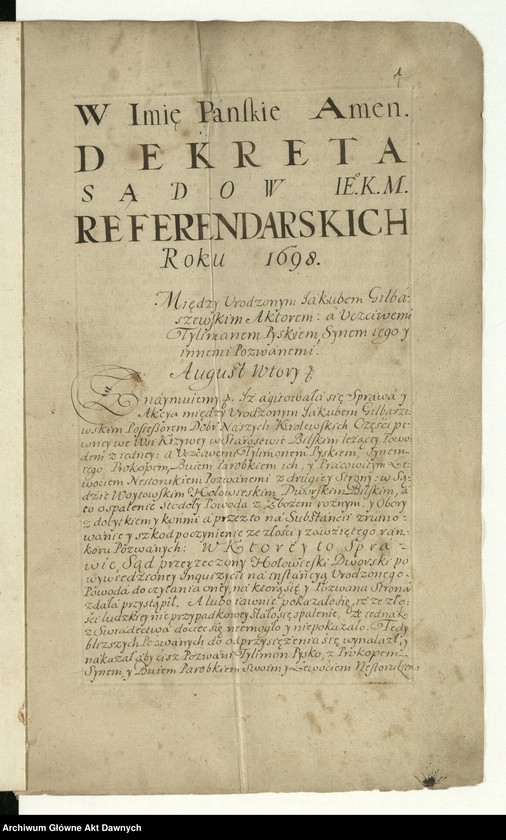 1
W Imię Pańskie Amen.
DEKRETA
SĄDOW IEº.K.M.
REFERENDARSKICH
Roku 1698.
Między Urodzonym Jakubem Gilba-
szewskim Aktorem: a Uczciwemi
Tylimanem Pyskiem, Synem iego y
innemi Pozwanemi.
August Wtory
Znaymuiemy Iż agitowała się Sprawa y
Akcya między Urodzonym Jakubem Gilbarze-
wskim Possessorem Dobr Naszych Krolewskich Części pe-
wney we Wsi Krzywey w Starostwie Bilskim leżącey Powo-
dem z iedney: a Uczciwemi Tylimonem Pyskiem, Synem
iego Prokopem, Buiem Parobkiem ich, y Pracowitym Le-
wociem Nestorukiem Pozwanemi z drugiey Strony: w Są-
dzie Woytowskim Hołowieskim Dworskim Bilskim, a
to o spalenie Stodoły Powoda z Zbożem rożnym, y Obory
z dobytkiem y konmi a przez to na Substancii zruino-
wanie y szkod poczynienie ze złości y zawziętego ran-
koru Pozwanych: W Ktorey to Spra-
wie, Sąd przerzeczony Hołowieski Dworski po
wywiedzioney Inquizycii na instancyą Urodzonego
Powoda do czytania oney, na ktorą się y Pozwana Strona
zdała przystąpił. A lubo iawnie pokazało się, iż ze zło-
ści ludzkiey nie przypadkowey stało się spalenie, A iednak
z Swiadectwa dociec się niemogło y niepokazało. Tedy
bliższych Pozwanych do odprzysiężenia się wynalazł, y
nakazał aby ciż Pozwani Tylimon Pysko, z Prokopem
Synem, y Buiem Parobkiem swoim y Lewociem Nestorukiem
Archiwum Główne Akt Dawnych